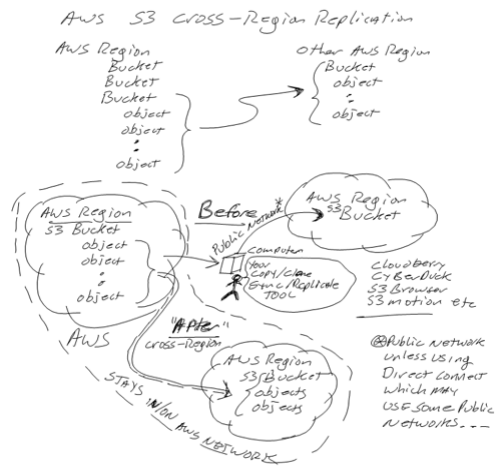 AWS S3 Cross-Region Replication
AWS Region
Bucket
Bucket
Bucket
object
object
:
object
Other AWS Region
Bucket
object
:
object
AWS Region
S3 Bucket
object
object
:
object
AWS
Before
Public Network*
AWS Region
S3 Bucket
Computer
Your
Copy/Clone
Sync/Replicate
TOOL
Cloudberry
CyberDuck
S3 Browser
S3motion etc
"After"
Cross-Region
AWS Region
S3 Bucket
objects
objects
STAYS IN/ON AWS NETWORK
*Public Network
unless using
Direct Connect
which may
use some Public
Networks...